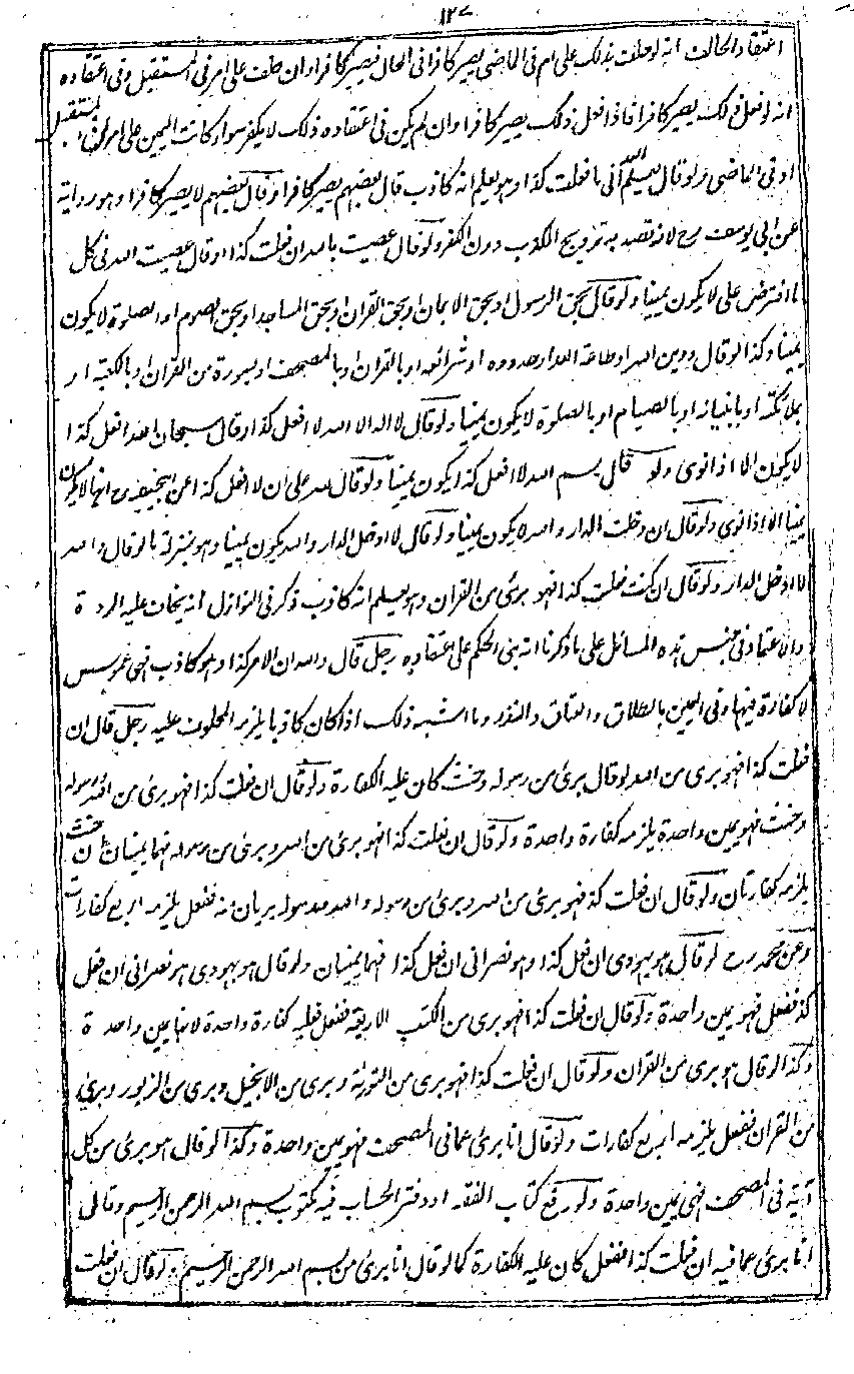 ١٢٧
اعتقاد الحالف انه لو حلف بذلك على امر فى الماضى يصير كافرا فى الحال فيصير كافرا وان حلف على امر فى المستقبل وفى اعتقاده
انه لو فعل ذلك يصير كافرا فاذا فعل ذلك يصير كافرا وان لم يكن فى اعتقاده ذلك لا يكفر سواء كانت اليمين على امر فى المستقبل
او فى الماضى ولو قال يعلم الله انى ما فعلت كذا وهو يعلم انه كاذب قال بعضهم يصير كافرا وقال بعضهم لا يصير كافرا وهو رواية
عن ابى يوسف رح لانه قصد به ترويج الكذب دون الكفر ولو قال عصيت بالله ان فعلت كذا او قال عصيت الله فى كل
ما افترض على لا يكون يمينا ولو قال بحق الرسول او بحق الايمان او بحق القران او بحق المساجد او بحق الصوم او الصلوة لا يكون
يمينا وكذا لو قال ودين الله او طاعة الله او حدوده او شرائعه او بالقران او بالمصحف او بسورة من القران او بالكعبة او
بملائكته او بانبيائه او بالصيام او بالصلوة لا يكون يمينا ولو قال لا اله الا الله لا افعل كذا او قال سبحان الله افعل كذا
لا يكون الا اذا نوى ولو قال بسم الله لا افعل كذا يكون يمينا ولو قال لله على ان لا افعل كذا عن ابيحنيفة رح انها لا يكون
يمينا الا اذا نوى ولو قال ان دخلت الدار والله لا يكون يمينا ولو قال لا ادخل الدار والله يكون يمينا وهو بمنزلة ما لو قال والله
لا ادخل الدار ولو قال ان كنت فعلت كذا فهو برئ من القران وهو يعلم انه كاذب ذكر فى النوازل انه يخاف عليه الردة
والاعتماد فى جنس هذه المسائل على ما ذكرنا انه بنى الحكم على اعتقاده رجل قال والله ان الامر كذا وهو كاذب فهى غموس
لا كفارة فيها وفى اليمين بالطلاق والعتاق والنذور وما اشبه ذلك اذا كان كاذبا يلزمه المحلوف عليه رجل قال ان
فعلت كذا فهو برئ من الله او قال برئ من رسوله وحنث كان عليه الكفارة ولو قال ان فعلت كذا فهو برئ من الله ورسوله
وحنث فهو يمين واحدة يلزمه كفارة واحدة ولو قال ان فعلت كذا فهو برئ من الله وبرئ من رسوله فهما يمينان ان حنث
يلزمه كفارتان ولو قال ان فعلت كذا فهو برئ من الله وبرئ من رسوله والله ورسوله بريان منه ففعل يلزمه اربع كفارات
وعن محمد رح لو قال هو يهودى ان فعل كذا وهو نصرانى ان فعل كذا فهما يمينان ولو قال هو يهودى هو نصرانى ان فعل
كذا ففعل فهو يمين واحدة ولو قال ان فعلت كذا فهو برى من الكتب الاربعة ففعل فعليه كفارة واحدة لانها يمين واحدة
وكذا لو قال هو برى من القران ولو قال ان فعلت كذا فهو برى من التورية وبرى من الانجيل وبرى من الزبور وبرئ
من القران ففعل يلزمه اربع كفارات ولو قال انا برئ مما فى المصحف فهو يمين واحدة وكذا لو قال هو برئ من كل
آية فى المصحف فهى يمين واحدة ولو رفع كتاب الفقه او دفتر الحساب فيه مكتوب بسم الله الرحمن الرحيم وقال
انا برئ مما فيه ان فعلت كذا ففعل كان عليه الكفارة كما لو قال انا برئ من بسم الله الرحمن الرحيم ولو قال ان فعلت